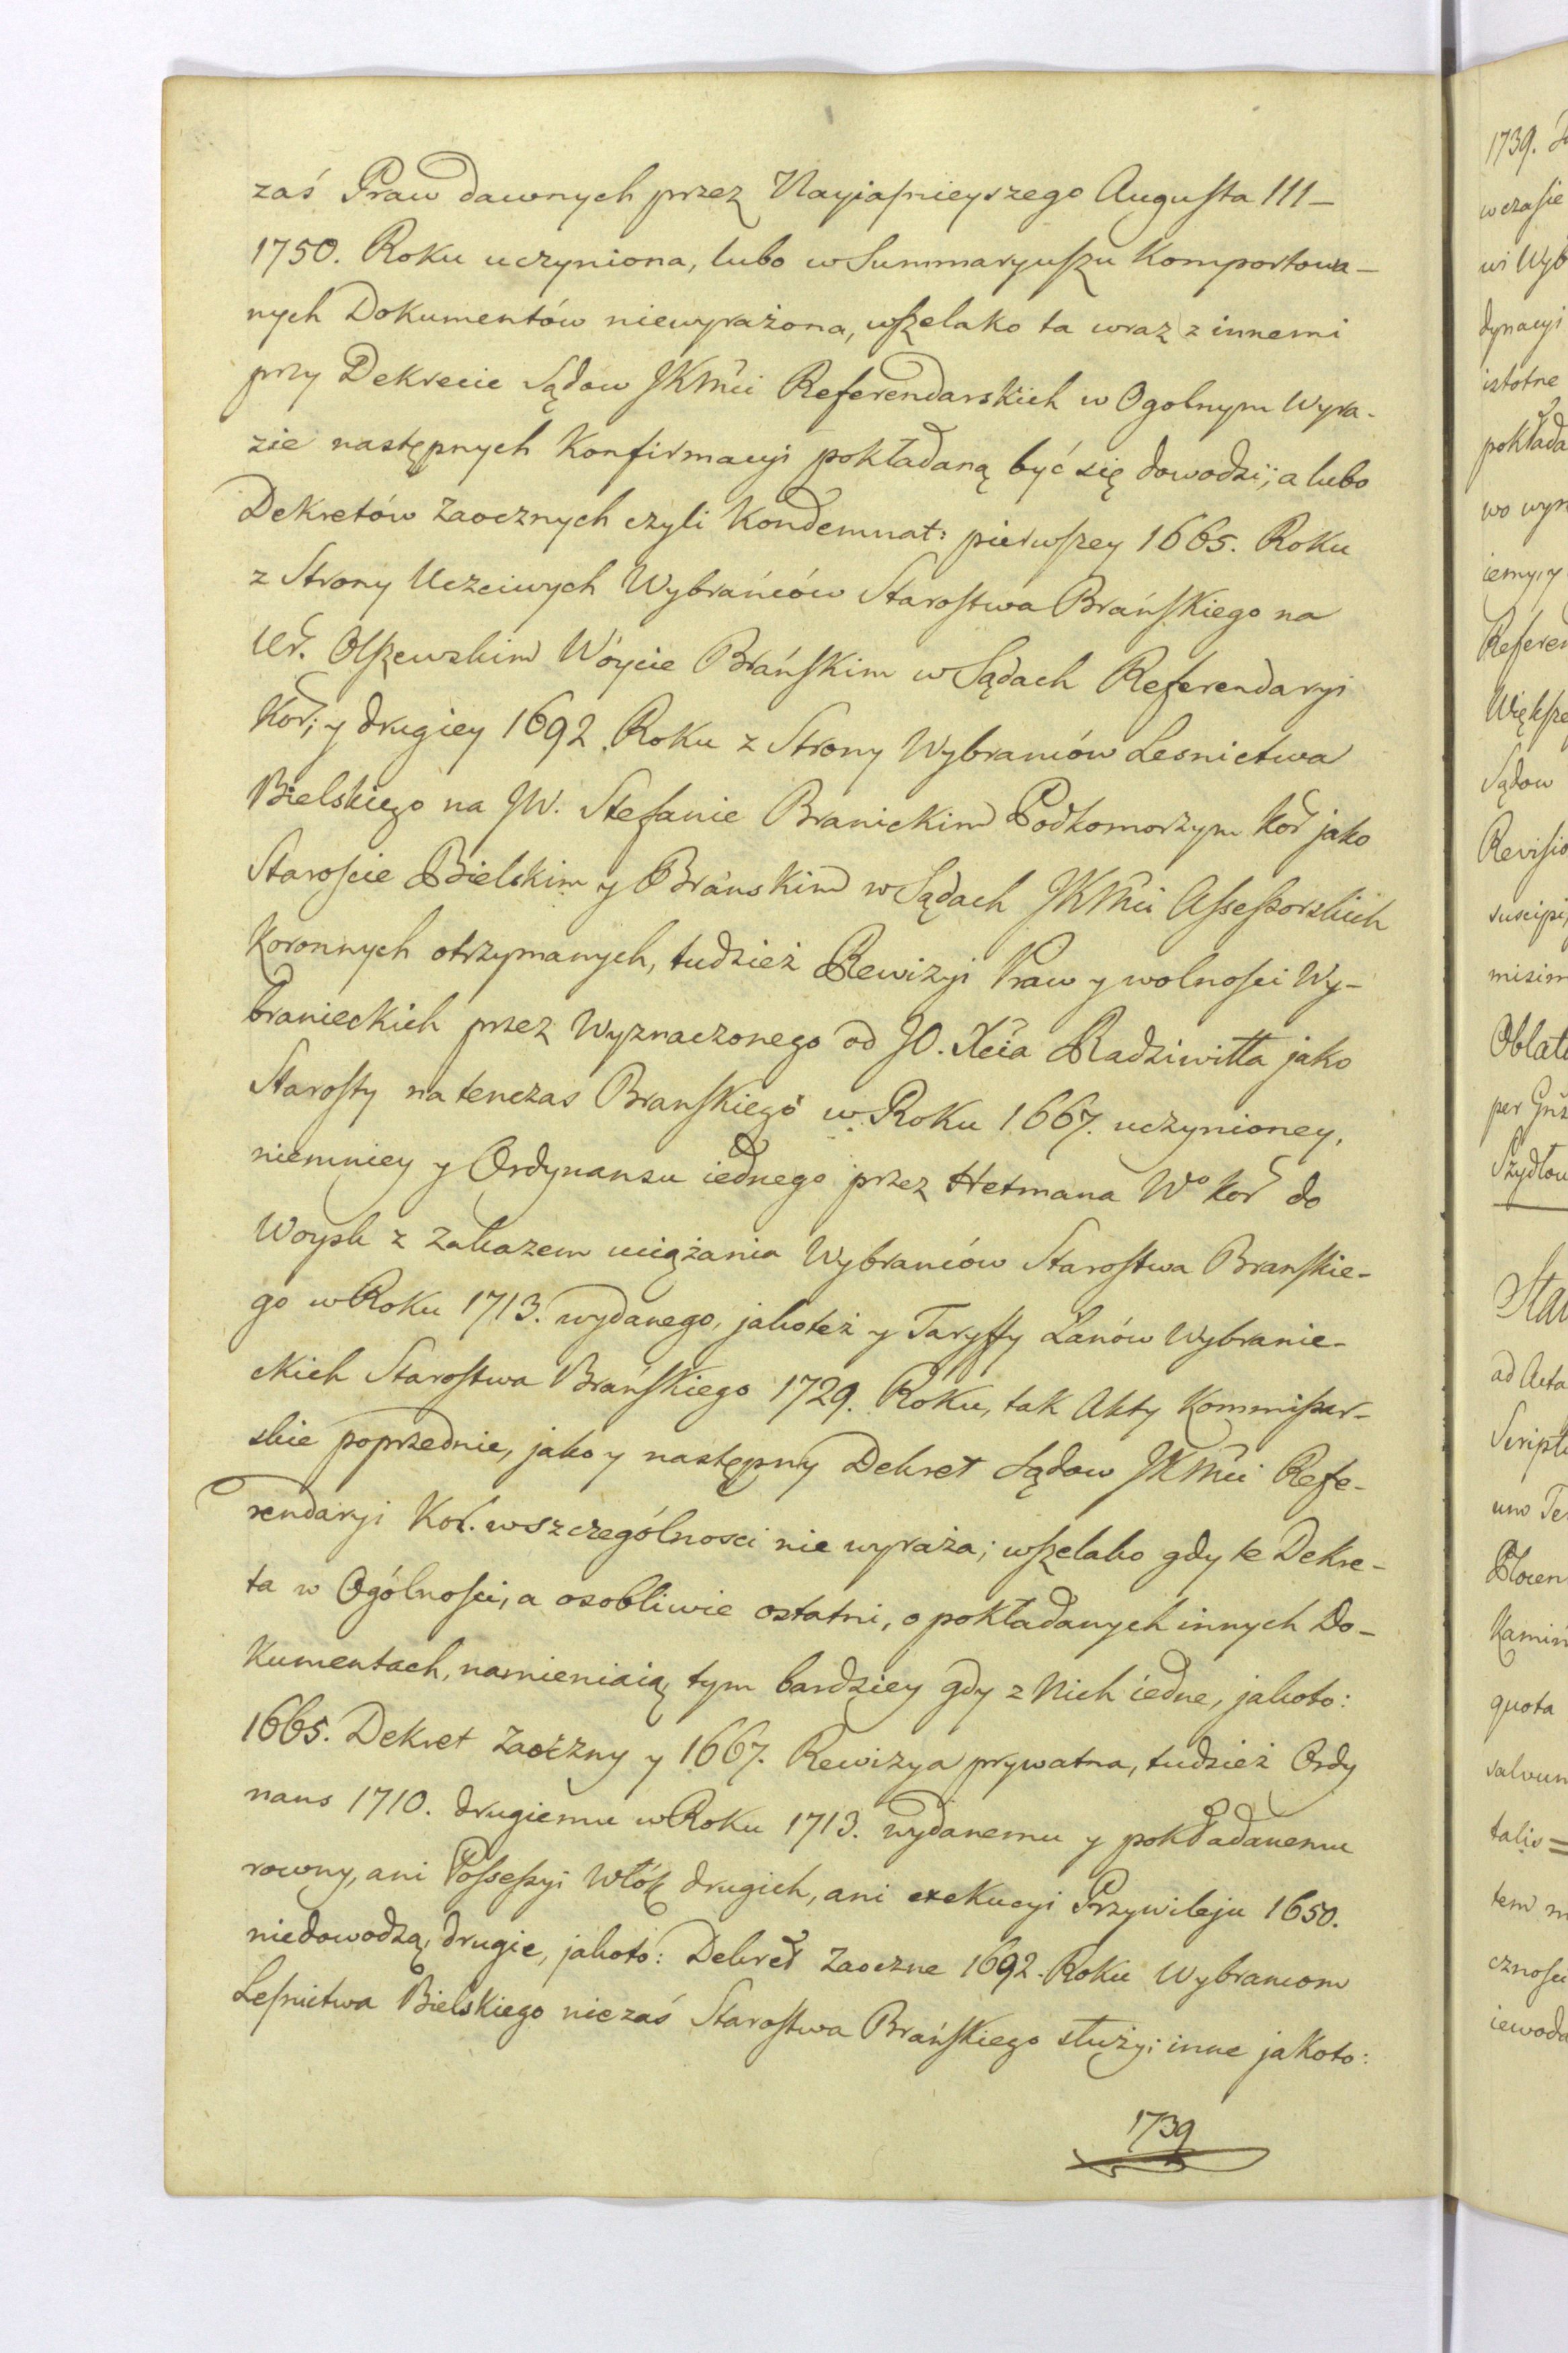 zaś Praw dawnych przez Nayiaśnieyszego Augusta III_
1750. Roku uczyniona, lubo w Summaryuszu Komportowa_
nych Dokumentów niewyrażona, wszelako ta wraz z innemi
przy Dekrecie Sądow JKMci Referendarskich w Ogolnym Wyra-
zie następnych Konfirmacyi pokładaną być się dowodzi; a lubo
Dekretów Zaocznych czyli Kondemnat: pierwszey 1665. Roku
z Strony Uczciwych Wybrańców Starostwa Brańskiego na
Ur. Olszewskim Wóycie Brańskim w Sądach Referendaryi
Kor; y drugiey 1692. Roku z Strony Wybrańców Lesnictwa
Bielskiego na JW. Stefanie Branickim Podkomorzym Kor jako
Staroście Bielskim y Brańskim w Sądach JKMci Assessorskich
Koronnych otrzymanych, tudzież Rewizyi Praw y wolności Wy-
branieckich przez Wyznaczonego od JO. Xcia Radziwiłła jako
Starosty na tenczas Branskiego w Roku 1667. uczynioney,
niemniey y Ordynansu iednego przez Hetmana Wo Kor do
Woysk z Zakazem uciążania Wybrańców Starostwa Branskie-
go w Roku 1713. wydanego, jakoteż y Taryffy Łanów Wybranie-
ckich Starostwa Brańskiego 1729. Roku, tak Akty Kommissar-
skie poprzednie, jako y następny Dekret Sądow JKMci Refe-
rendaryi Kor. wszczególnosci nie wyraża; wszelako gdy te Dekre-
ta w Ogólności, a osobliwie ostatni, o pokładanych innych Do-
kumentach, namieniaią, tym bardziey gdy z Nich iedne, jakoto:
1665. Dekret Zaoczny y 1667. Rewizya prywatna, tudzież Ordy
nans 1710. drugiemu w Roku 1713. wydanemu y pokładanemu
rowny, ani Possessyi Włók drugich, ani exekucyi Przywileju 1650.
niedowodzą, drugie, jakoto: Dekret Zaoczne 1692. Roku Wybrancom
Leśnictwa Bielskiego nie zaś Starostwa Brańskiego służy; inne jakoto:
1739
1739.
w czasie
wi Wyb
dynacyi
istotne
pokłada
wo wyr
iemy, y
Referen
Większe
Sądow
Revisio
suscipi
misim
Oblat
per
Szydłow
Star
ad Acta
Script
uno Te
Kamin
quota
salvum
talis=
tem m
cznosci
iewoda